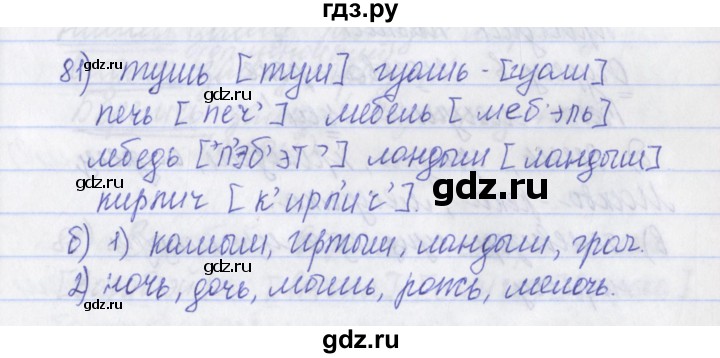 гдз.ру
81) тушь [туш] гуашь - [гуаш]
печь [печ'] мебель [меб'эль]
лебедь [л'эб'эт'] ландыш [ландыш]
кирпич [к'ирп'ич'].
б) 1) камыш, Иртыш, ландыш, грач.
2) ночь, дочь, мышь, рожь, мелочь.
gdz.ru
gdz.ru
gdz.ru
gdz.ru
gdz.ru
gdz.ru